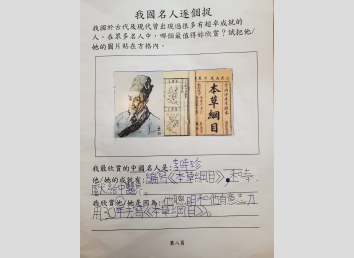 我國名人逐個捉
我國於古代及現代曾出現過很多有超卓成就的
人。在眾多名人中，哪個最值得妳欣賞？試把他/
她的圖片貼在方格內。
本草綱目
我最欣賞的中國名人是：李時珍
他/她的成就有：編寫《本草綱目》，
我欣賞他/她是因為：他聰明和他有意志力
用30年去寫《本草綱目》。
第八頁